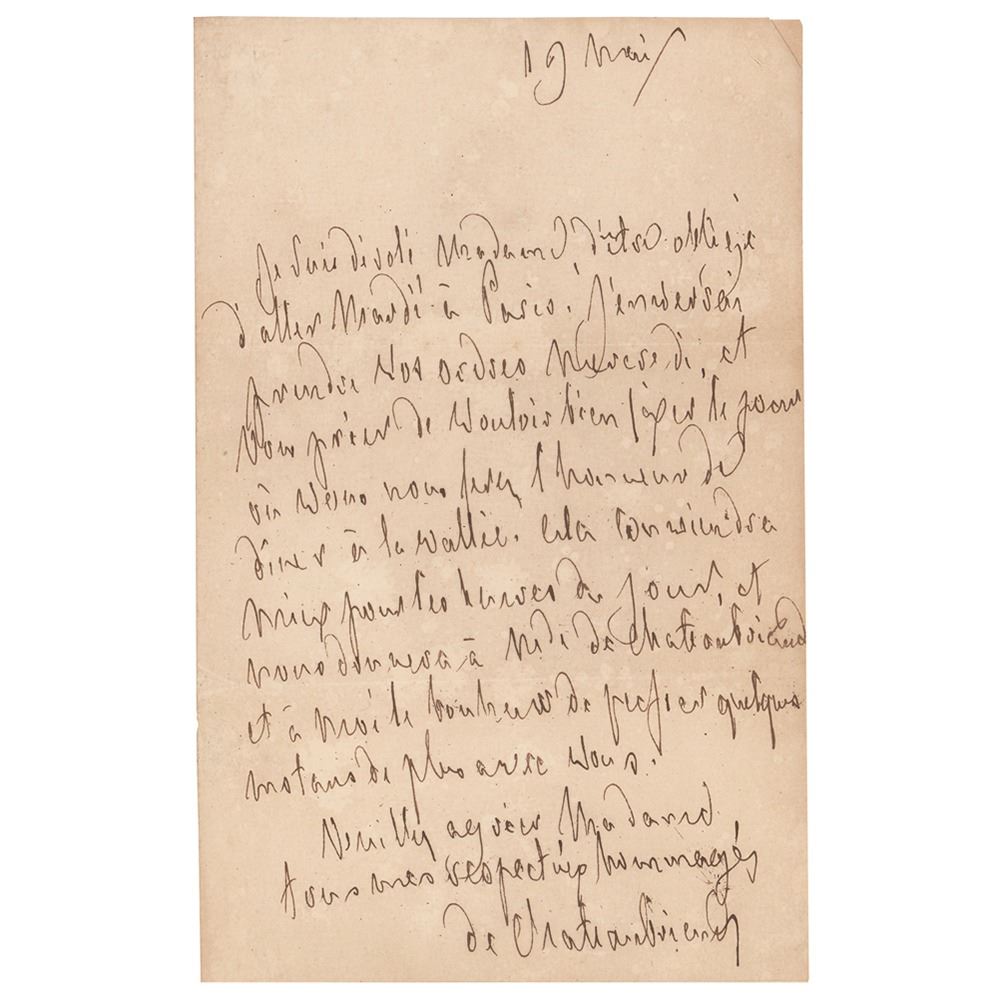 19 mai
Je suis désolé Madame, d'être obligé
d'aller Mardi à Paris. J'enverrai
prendre vos ordres Mercredi, et
vous prier de vouloir bien fixer le jour
où vous nous ferez l'honneur de
diner à la vallée. cela conviendra
mieux pour les heures du jour, et
nous donnera à Mde de Chateaubriand
et à moi le bonheur de passer quelques
instans de plus avec vous.
Veuillez agréer Madame,
tous mes respectueux hommages
de Chateaubriand